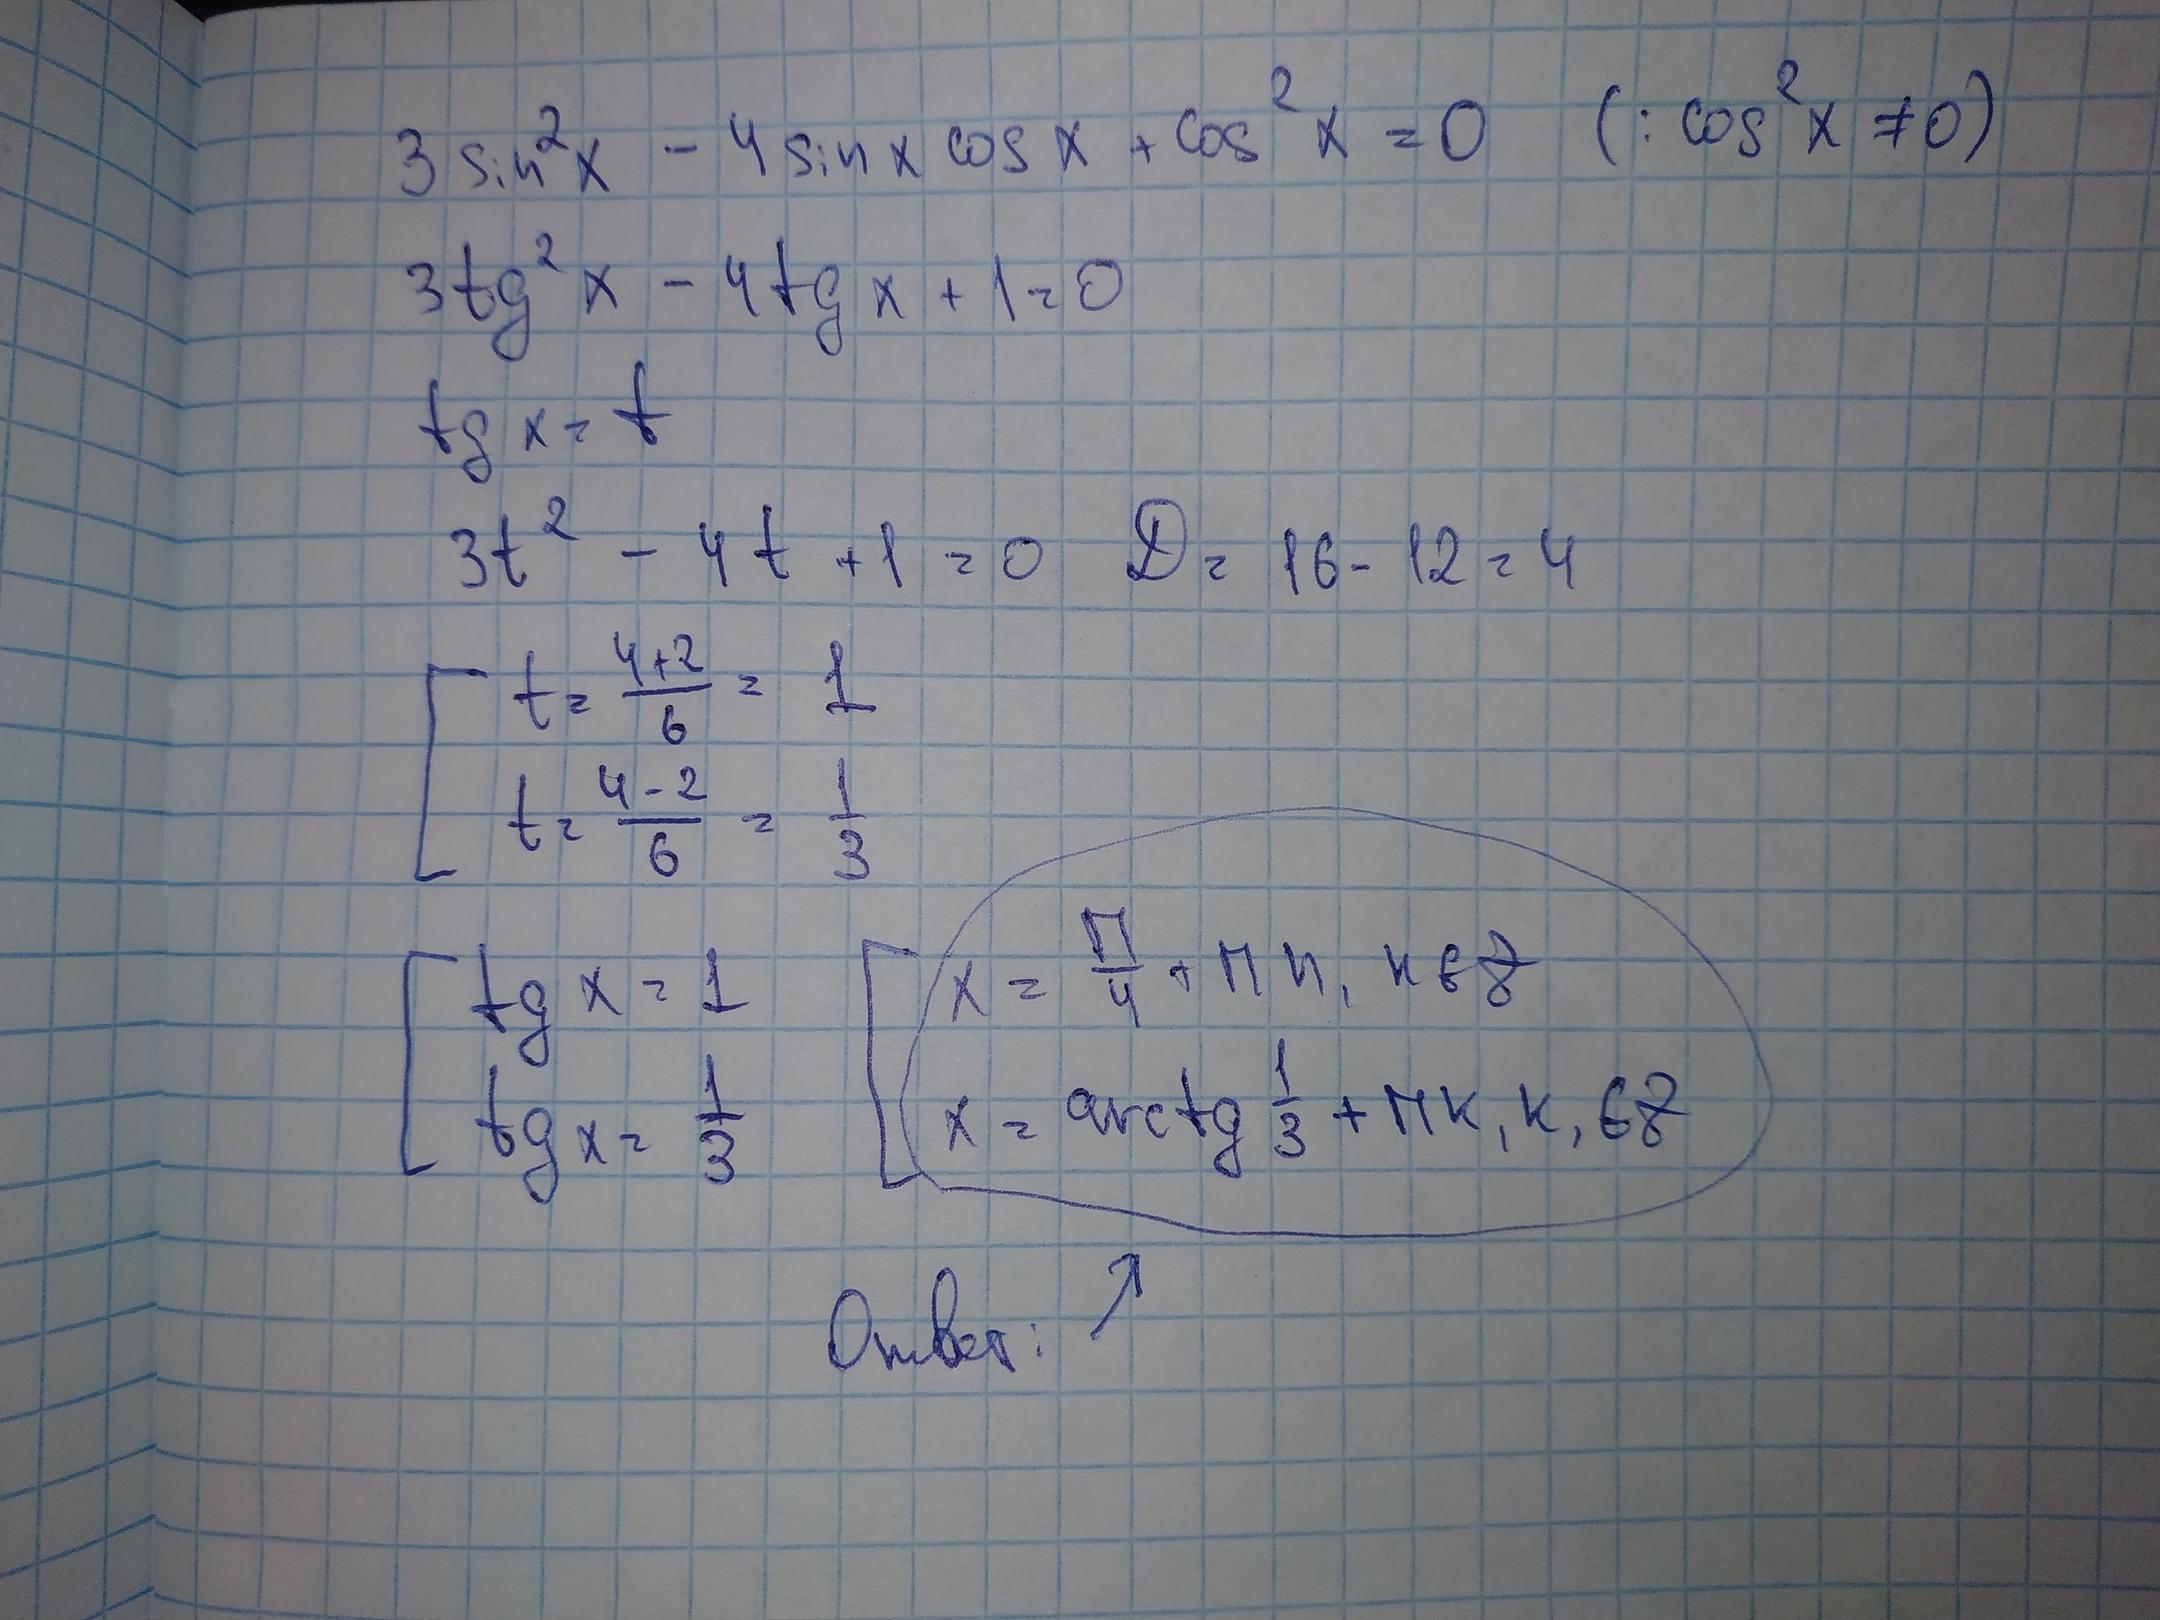 3 sin²x - 4 sin x cos x + cos²x = 0 (: cos²x ≠ 0)
3tg²x - 4tg x + 1 = 0
tg x = t
3t² - 4t + 1 = 0 D = 16 - 12 = 4
[ t = (4+2)/6 = 1
t = (4-2)/6 = 1/3
[ tg x = 1 [ x = П/4 + Пn, n ∈ Z
tg x = 1/3 x = arctg 1/3 + Пk, k, ∈ Z
Ответ: ↗